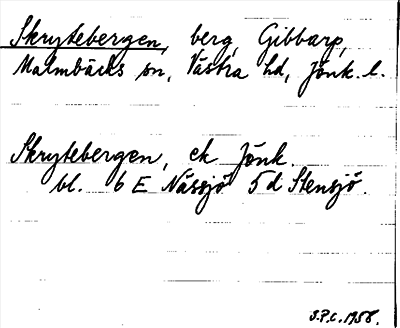 Skrytebergen, berg, Gibbarp,
Malmbäcks sn, Västra hd, Jönk. l.
Skrytebergen, ek Jönk.
bl. 6 E Nässjö 5 d Stensjö.
S.P.C. 1958.